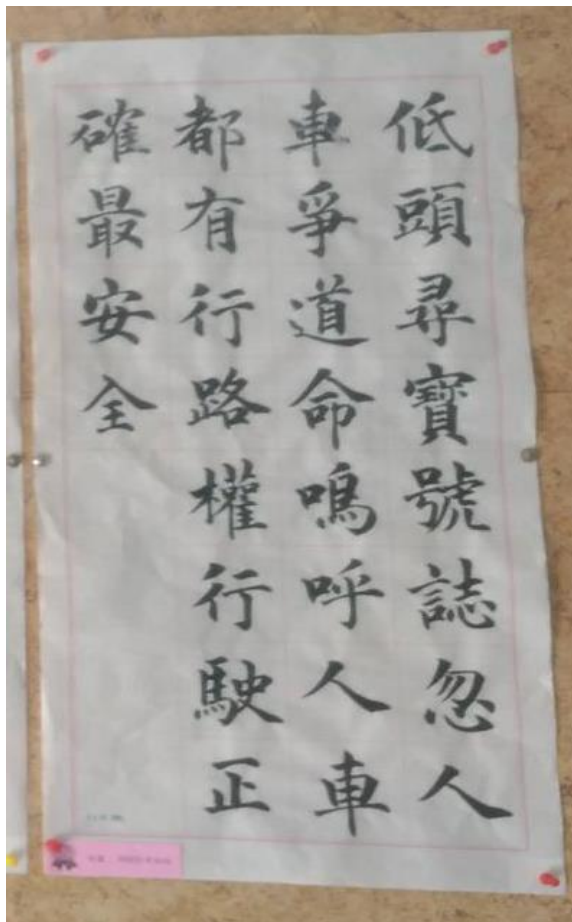 低頭尋寶號誌忽人
車爭道命鳴呼人車
都有行路權行駛正
確最安全